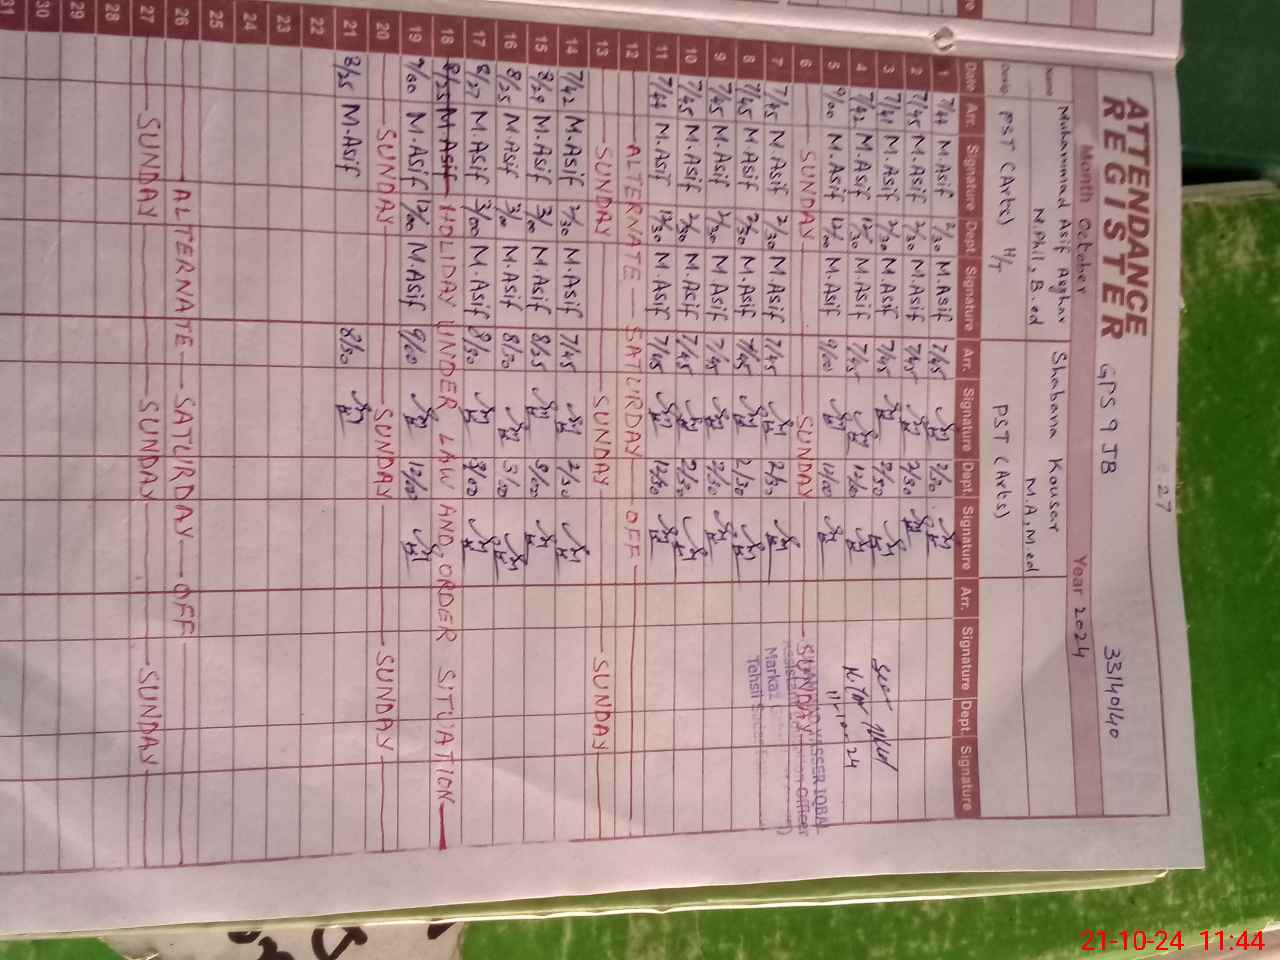 27
ATTENDANCE REGISTER GPS 9 JB 33140140
Month October Year 2024
Name Muhammad Asif Asghar M.Phil, B.ed Shabana Kouser M.A, M.ed
PST (Arts) H/T PST (Arts)
Date Arr. Signature Dept. Signature Arr. Signature Dept. Signature Arr. Signature Dept. Signature
1 7/44 M.Asif 2/30 M.Asif 7/45 2/30
2 7/45 M.Asif 2/30 M.Asif 7/45 2/30
3 7/41 M.Asif 2/30 M.Asif 7/45 2/30
4 7/42 M.Asif 12/30 M.Asif 7/45 12/30
5 9/00 M.Asif 12/00 M.Asif 9/00 12/00
6 SUNDAY SUNDAY SUNDAY
7 7/45 M Asif 2/30 M Asif 7/45 2/30
8 7/45 M Asif 2/30 M.Asif 7/45 2/30
9 7/45 M.Asif 2/30 M Asif 7/45 2/30
10 7/45 M.Asif 2/30 M.Asif 7/45 2/30
11 7/44 M.Asif 12/30 M.Asif 7/45 12/30
12 ALTERNATE SATURDAY OFF
13 SUNDAY SUNDAY SUNDAY
14 7/42 M.Asif 2/30 M.Asif 7/45 2/30
15 8/29 M.Asif 3/00 M.Asif 8/25 3/00
16 8/25 M Asif 3/00 M.Asif 8/30 3/00
17 8/27 M.Asif 3/00 M.Asif 8/30 3/00
18 8/25 M.Asif HOLIDAY UNDER LAW AND ORDER SITUATION
19 9/00 M.Asif 12/00 M.Asif 9/00 12/00
20 SUNDAY SUNDAY SUNDAY
21 8/25 M.Asif 8/30
22
23
24
25
26 ALTERNATE SATURDAY OFF
27 SUNDAY SUNDAY SUNDAY
28
29
30
31
11-10-24
Markaz
Tehsil
21-10-24 11:44